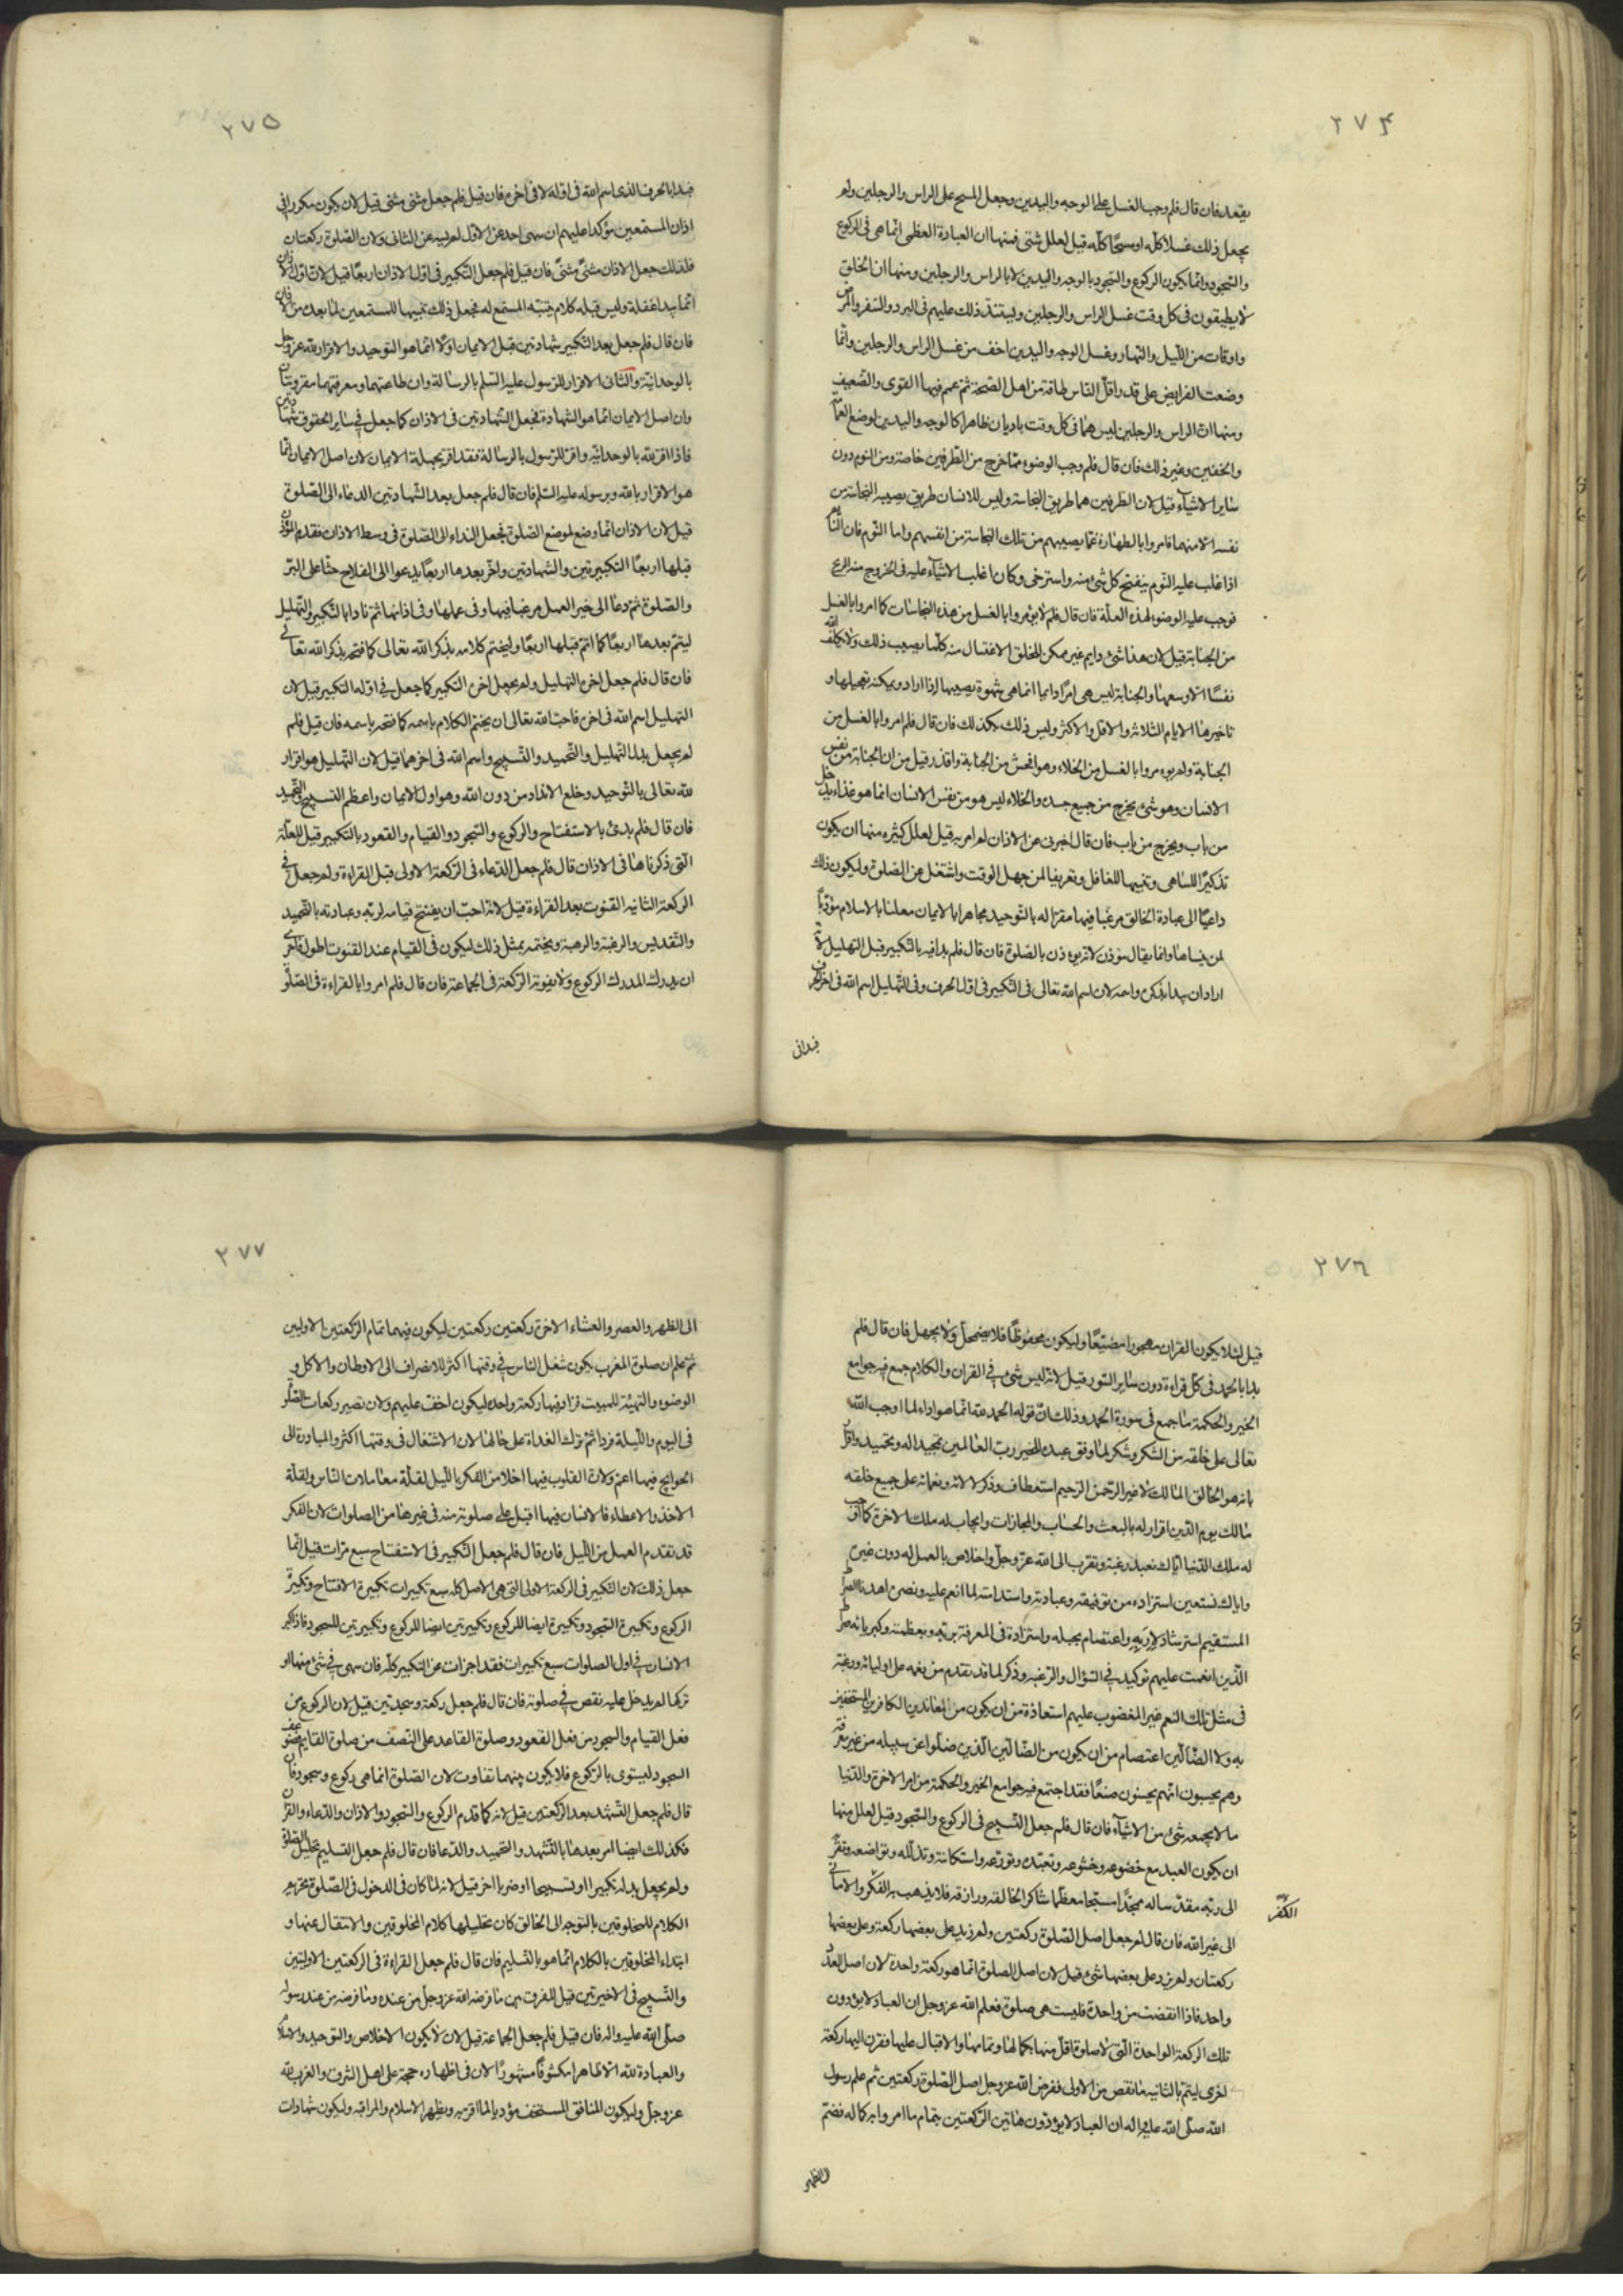 ٢٧٤
يتعد فان قال فلم وجب الغسل على الوجه واليدين وجعل المسح على الراس والرجلين ولم
يجعل ذلك غسلا كله او مسحًا كله قيل لعلل شتى فمنها ان العبادة العظمى انما هى فى الركوع
والسجود وانما يكون الركوع والسجود بالوجه واليدين لا بالراس والرجلين ومنها ان الخلق
لا يطيقون فى كل وقت غسل الراس والرجلين ويشتد ذلك عليهم فى البرد والسفر والمرض
واوقات من الليل والنهار وغسل الوجه واليدين اخف من غسل الراس والرجلين وانما
وضعت الفرايض على قدر اقل الناس طاقة من اهل الصحة ثم عم فيها القوى والضعيف
ومنها ان الراس والرجلين ليس هما فى كل وقت باديان ظاهرا كالوجه واليدين لموضع العمامة
والخفين وغير ذلك فان قال فلم وجب الوضوء مما خرج من الطرفين خاصة ومن النوم دون
ساير الاشيآء قيل لان الطرفين هما طريق النجاسة وليس للانسان طريق يصيبه النجاسة من
نفسه الا منهما فامروا بالطهارة عما يصيبهم من تلك النجاسة من انفسهم واما النوم فان النائم
اذا غلب عليه النوم ينفتح كل شئ منه واسترخى وكان اغلب الاشيآء عليه فى الخروج منه الريح
فوجب عليه الوضوء لهذه العلة فان قال فلم لا يؤمروا بالغسل من هذه النجاسات كما امروا بالغسل
من الجنابة قيل لان هذا شئ دايم غير ممكن للخلق الاغتسال منه كلما يصيب ذلك ولا يكلف الله
نفسًا الا وسعها والجنابة ليس هى امرًا دايما انما هى شهوة يصيبها اذا اراد ويمكنه تعجيلها و
تاخيرها الايام الثلاثة والاقل والاكثر وليس ذلك هكذا فان قال فلم امروا بالغسل من
الجنابة ولم يومروا بالغسل من الخلاء وهو انجس من الجنابة واقذر قيل من ان الجنابة من نفس
الانسان وهو شئ يخرج من جميع جسده والخلاء ليس هو من نفس الانسان انما هو غذاء يدخل
من باب ويخرج من باب فان قال اخبرنى عن الاذان لم امر به قيل لعلل كثيره منها ان يكون
تذكيرًا للساهى وتنبيها للغافل وتعريفا لمن جهل الوقت واشتغل عن الصلوة وليكون ذلك
داعيًا الى عبادة الخالق مرغبًا فيها مقرًا له بالتوحيد مجاهرا بالايمان معلنا بالاسلام موذنًا
لمن ينساها وانما يقال موذن لانه يوءذن بالصلوة فان قال فلم بدا فيه بالتكبير قبل التهليل لانه
اراد ان يبدا بذكره واسمه لان اسم الله تعالى فى التكبير فى اول الحرف وفى التهليل اسم الله فى اخر الحرف
فبدا
٢٧٥
فبدا بالحرف الذى اسم الله فى اوله لا فى اخره فان قيل فلم جعل مثنى مثنى قيل لان يكون مكررا فى
اذان المستمعين مؤكدا عليهم ان سهى احد عن الاول لم يسه عن الثانى ولان الصلوة ركعتان
فلذلك جعل الاذان مثنىً مثنىً فان قيل فلم جعل التكبير فى اول الاذان اربعًا قيل لان اول الاذان
انما يبدا غفلة وليس قبله كلام يتنبه المستمع له فجعل ذلك تنبيها للمستمعين لما بعده من الاذان
فان قال فلم جعل بعد التكبير شهادتين قيل الايمان اولًا انما هو التوحيد والاقرار لله عز وجل
بالوحدانيّة والثانى الاقرار للرسول عليه السّلم بالرسالة وان طاعتهما ومعرفتهما مقرونتان
وان اصل الايمان انما هو الشهادة فجعل الشهادتين فى الاذان كما جعل فى ساير الحقوق شهادتين
فاذا اقر لله بالوحدانيّة واقر للرسول بالرسالة فقد اقر بجملة الايمان لان اصل الايمان انما
هو الاقرار بالله وبرسوله عليه السّلم فان قال فلم جعل بعد الشهادتين الدعاء الى الصّلوة
قيل لان الاذان انما وضع لموضع الصّلوة فجعل النداء الى الصّلوة فى وسط الاذان فقدم المؤذن
قبلها اربعًا التكبيرتين والشهادتين واخّر بعدها اربعًا يدعوا الى الفلاح حثًا على البّر
والصّلوة ثم دعا الى خير العمل مرغبا فيها وفى عملها وفى اذانها ثم نادا بالتكبير والتهليل
ليتم بعدها اربعًا كما اتم قبلها اربعًا وليختم كلامه بذكر الله تعالى كما فتحه بذكر الله تعالى
فان قال فلم جعل اخره التهليل ولم يجعل اخره التكبير كما جعل فى اوله التكبير قيل لان
التهليل اسم الله فى اخره فاحبّ الله تعالى ان يختم الكلام باسمه كما فتحه باسمه فان قيل فلم
لم يجعل بدل التهليل والتحميد والتسبيح واسم الله فى اخرهما قيل لان التهليل هو اقرار
لله تعالى بالتوحيد وخلع الانداد من دون الله وهو اول الايمان واعظم التسبيح والتحميد
فان قال فلم بدئ بالاستفتاح والركوع والسّجود والقيام والقعود بالتكبير قيل للعلّة
التى ذكرناها فى الاذان قال فلم جعل الدّعاء فى الركعة الاولى قبل القراءة ولم جعل فى
الركعة الثانيه القنوت بعد القراءة قيل لانه احبّ ان يفتتح قيامه لربّه وعبادته بالتحميد
والتقديس والرغبة والرهبة ويختمه بمثل ذلك ليكون فى القيام عند القنوت اطول فاحرى
ان يدرك المدرك الركوع ولا يفوته الركعة فى الجماعة فان قال فلم امروا بالقراءة فى الصّلوة
٢٧٦
قيل لئلا يكون القران مهجورا مضيّعًا وليكون محفوظًا فلا يضمحل ولا يجهل فان قال فلم
بدا بالحمد فى كل قراءة دون ساير السّور قيل لانه ليس شئ فى القران والكلام جمع فيه جوامع
الخير والحكمة ما جمع فى سورة الحمد وذلك انّ قوله الحمد لله انما هو اداء لما اوجب الله
تعالى على خلقه من الشكر وشكر لما وفق عبده للخير ربّ العالمين تمجيدا له وتحميد واقرار
بانه هو الخالق المالك لا غير الرّحمن الرّحيم استعطاف وذكر لالائه ونعمائه على جميع خلقه
مالك يوم الدّين اقرار له بالبعث والحساب والمجازات وايجاب له ملك الاخرة كما اوجب
له ملك الدّنيا ايّاك نعبد رغبة وتقرب الى الله عزّ وجلّ واخلاص بالعمل له دون غيره
واياك نستعين استزاده من توفيقه وعبادته واستدامته لما انعم عليه ونصره اهدنا الصراط
المستقيم استرشاد لادبه واعتصام بحبله واستزادة فى المعرفة بربّه وبعظمته وكبريائه صراط
الّذين انعمت عليهم توكيد فى السّؤال والرّغبة وذكر لما قد تقدم من نعمه على اوليائه ورغبة
فى مثل تلك النعم غير المغضوب عليهم استعاذة من ان يكون من المعاندين الكافرين المستخفين
به ولا الضّالّين اعتصام من ان يكون من الضّالّين الّذين ضلّوا عن سبيله من غير معرفة
وهم يحسبون انهم يحسنون صنعًا فقد اجتمع فيه جوامع الخير والحكمة من امر الاخرة والدّنيا
ما لا يجمعه شئ من الاشيآء فان قال فلم جعل التّسبيح فى الركوع والسّجود قيل لعلل منها
ان يكون العبد مع خضوعه وخشوعه وتعبّده وتورّعه واستكانته وتذلّله وتواضعه وتقربه
الى ربّه مقدّسا له ممجّدًا مسبّحا معظّما شاكرا لخالقه ورازقه فلا يذهب به الفكر والامانى
الفكر
الى غير الله فان قال لم جعل اصل الصّلوة ركعتين ولم زيد على بعضها ركعة وعلى بعضها
ركعتان ولم يزد على بعضها شئ قيل لان اصل الصلوة انما هو ركعة واحدة لان اصل العدد
واحد فاذا انقضت من واحدة فليست هى صلوة فعلم الله عز وجل ان العباد لا يؤدون
تلك الركعة الواحدة الّتى لا صلوة اقل منها بكمالها وتمامها والاقبال عليها فقرن اليها ركعة
اخرى ليتم بالثانيه ما نقص من الاولى ففرض الله عز وجل اصل الصّلوة ركعتين ثم علم رسول
الله صلّى الله عليه واله ان العباد لا يؤدّون هاتين الرّكعتين بتمام ما امروا به وكماله فضمّ
الى الظهر
٢٧٧
الى الظهر والعصر والعشاء الاخرة ركعتين ركعتين ليكون فيهما تمام الرّكعتين الاوليين
ثم علم ان صلوة المغرب يكون شغل الناس فى وقتها اكثر للانصراف الى الاوطان والاكل و
الوضوء والتهيئة للمبيت فزاد فيها ركعة واحدة ليكون اخف عليهم ولان تصير ركعات الصّلوة
فى اليوم والليلة فردا ثم ترك الغداة على حالها لان الاشتغال فى وقتها اكثر والمبادرة الى
الحوايج فيها اعم ولان القلوب فيها اخلا من الفكر بالليل لقلّة معاملات النّاس ولقلّة
الاخذ والاعطاء فالانسان فيها اقبل على صلوته منه فى غيرها من الصلوات لان الفكر
قد تقدم العمل من الليل فان قال فلم جعل التكبير فى الاستفتاح سبع مرّات قيل انّما
جعل ذلك لان التكبير فى الركعة الاولى التى هى الاصل كله سبع تكبيرات تكبيرة الافتتاح وتكبيرة
الركوع وتكبيرة السّجود وتكبيرة ايضا للركوع وتكبيرتين ايضا للركوع وتكبيرتين للسجود فاذا كبر
الانسان فى اول الصلوات سبع تكبيرات فقد اجزات عن التكبير كلّه فان سهى فى شئ منها او
تركها لم يدخل عليه نقص فى صلوته فان قال فلم جعل ركعة وسجدتين قيل لان الركوع من
فعل القيام والسجود من فعل القعود وصلوة القاعد على النّصف من صلوة القايم فضوعف
السجود ليستوى بالرّكوع فلا يكون بينهما تفاوت لان الصّلوة انما هى ركوع وسجود فان
قال فلم جعل التّشهّد بعد الرّكعتين قيل لانه كما قدم الركوع والسّجود والاذان والدّعاء والقران
فكذلك ايضا امر بعدها بالتّشهد والتحميد والدّعا فان قال فلم جعل التسليم تحليل الصّلوة
ولم يجعل بدله تكبيرا او تسبيحا او ضربا اخر قيل لانه لما كان فى الدخول فى الصّلوة تحريم
الكلام للمخلوقين بالتوجه الى الخالق كان تحليلها كلام المخلوقين والانتقال عنها و
ابتداء المخلوقين بالكلام انّما هو بالتّسليم فان قال فلم جعل القراءة فى الركعتين الاوليين
والتّسبيح فى الاخيرتين قيل للفرق بين ما فرضه الله عز وجل من عنده وما فرضه من عند رسوله
صلّى الله عليه واله فان قيل فلم جعل الجماعة قيل لان لا يكون الاخلاص والتوحيد والاسلام
والعبادة لله الا ظاهرا مكشوفًا مشهورًا لان فى اظهاره حجة على اهل الشرق والغرب لله
عز وجلّ وليكون المنافق المستخف مؤديا لما اقر به ويظهر الاسلام والمراقبه وليكون شهادات